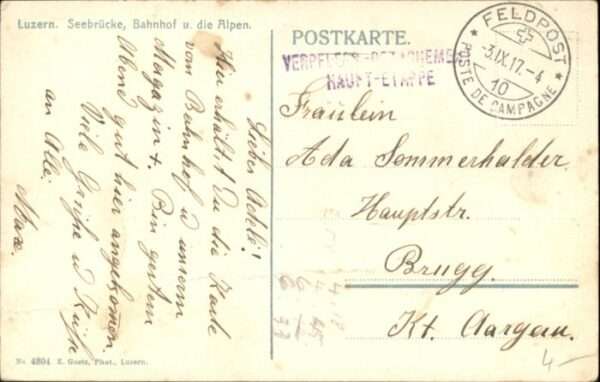 Luzern. Seebrücke, Bahnhof u. die Alpen.
Liebes Adeli!
Hier erhältst Du die Karte
vom Bahnhof u unserm
Magazin +. Bin gestern
Abend gut hier angekommen.
Viele Grüsse u Küsse
an Alle.
Max.
No 4804 E. Goetz, Phot., Luzern.
POSTKARTE.
VERPFLEGS-DETACHEMENT
HAUPT-ETAPPE
FELDPOST
3.IX.17.-4
10
POSTE DE CAMPAGNE
Fräulein
Ada Sommerhalder.
Hauptstr.
Brugg.
Kt. Aargau.
4.-